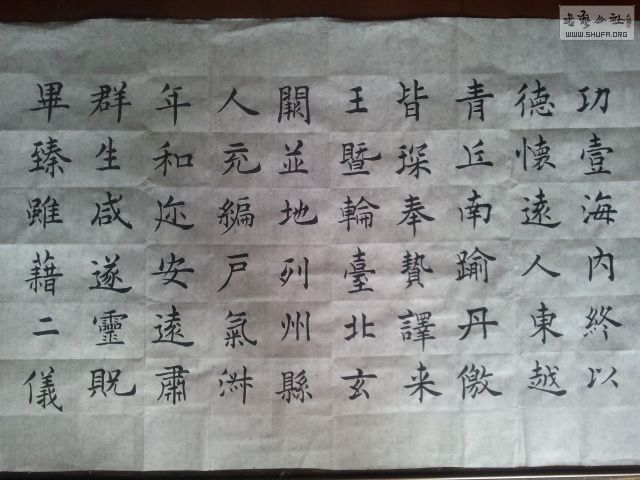 功壹海內終以
德懷遠人東越
青丘南踰丹徼
皆琛奉贄譯来
王暨輪臺北玄
闕並地列州縣
人充編戶氣淑
年和迩安遠肅
群生咸遂靈貺
畢臻雖藉二儀
WWW.SHUFA.ORG